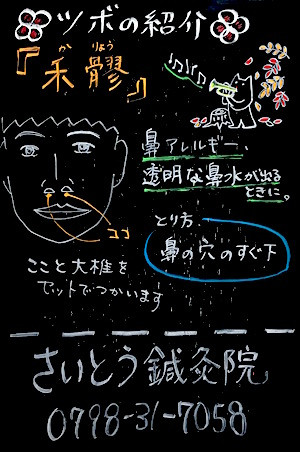 ツボの紹介
『禾髎』
か りょう
鼻アレルギー、
透明な鼻水が出る
ときに。
とり方
鼻の穴のすぐ下
ココ
ここと大椎を
セットでつかいます
さいとう鍼灸院
0798-31-7058